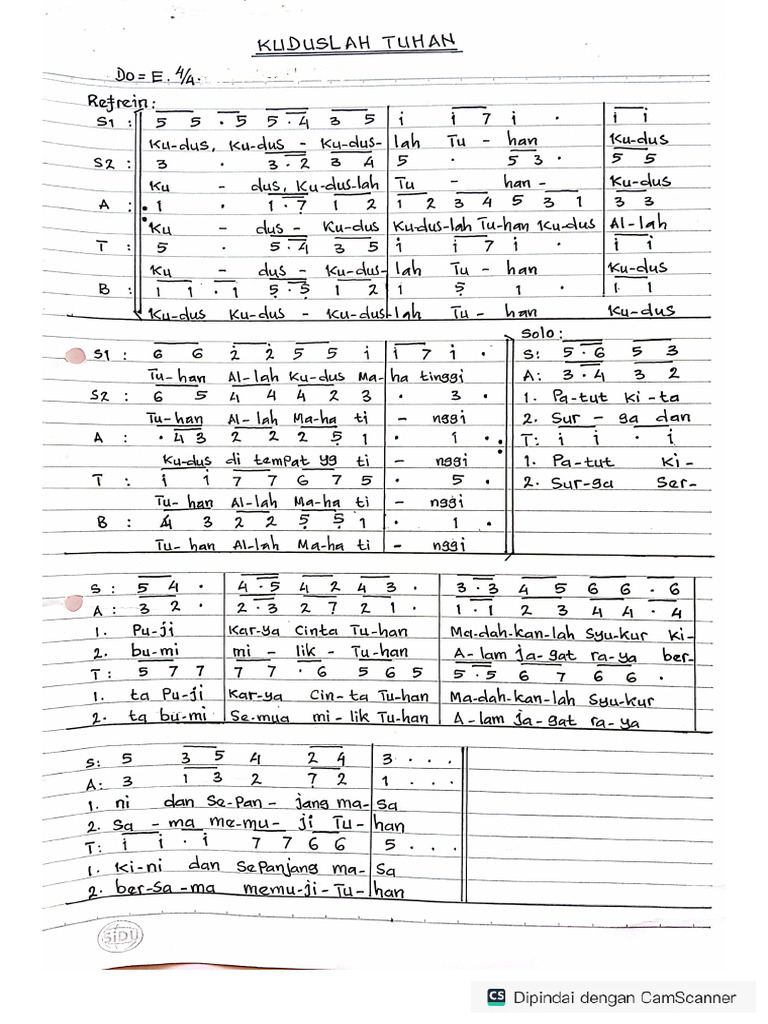 KUDUSLAH TUHAN
Do = E. 4/4.
Refrein:
S1 : 5 5 . 5 5 . 4 3 5 | i i 7 i . | i i
Ku-dus, Ku-dus - Ku-dus- lah Tu - han Ku-dus
S2 : 3 . 3 . 2 3 4 | 5 . 5 3 . | 5 5
Ku - dus, Ku-dus-lah Tu - han - Ku-dus
A : 1 . 1 . 7 1 2 | 1 2 3 4 5 3 1 | 3 3
Ku - dus - Kudus Kudus-lah Tu-han Kudus Al-lah
T : 5 . 5 4 3 5 | i i 7 i . | i i
Ku - dus - Ku-dus- lah Tu - han Ku-dus
B : 1 1 . 1 5 . 5 1 2 | 1 5 1 . | 1 1
Ku-dus Ku-dus - Ku-dus-lah Tu - han Ku-dus
S1 : 6 6 2 2 5 5 i | i 7 i .
Tu-han Al-lah Kudus Ma-ha tinggi
S2 : 6 5 4 4 4 2 3 . 3 .
Tu-han Al-lah Maha ti - nggi
A : . 4 3 2 2 2 5 1 . 1 .
Kudus di tempat yg ti - nggi
T : i 1 7 7 6 7 5 . 5 .
Tu-han Al-lah Ma-ha ti - nggi
B : 4 3 2 2 5 5 1 . 1 .
Tu-han Al-lah Ma-ha ti - nggi
Solo:
S: 5 . 6 5 3
A: 3 . 4 3 2
1. Pa-tut ki-ta
2. Sur - ga dan
T: i i . i
1. Pa-tut Ki-
2. Sur-ga Ser-
S: 5 4 . | 4 . 5 4 2 4 3 . | 3 . 3 4 5 6 6 . 6
A: 3 2 . | 2 . 3 2 7 2 1 . | 1 . 1 2 3 4 4 . 4
1. Pu-ji Kar-ya Cinta Tu-han Ma-dah-kan-lah Syu-kur ki-
2. bu-mi mi - lik - Tu-han A-lam ja-gat ra-ya ber-
T: 5 7 7 | 7 7 . 6 5 6 5 | 5 . 5 6 7 6 6 .
1. ta Pu-ji Kar-ya Cin-ta Tu-han Ma-dah-kan-lah Syu-kur
2. ta bu-mi Se-mua mi-lik Tu-han A-lam ja-gat ra-ya
S: 5 3 5 4 2 4 | 3 . . .
A: 3 1 3 2 7 2 | 1 . . .
1. ni dan se-pan - jang ma-sa
2. Sa - ma me-mu - ji Tu-han
T: i i . i 7 7 6 6 | 5 . . .
1. Ki-ni dan sepanjang ma-sa
2. ber-sa-ma memu-ji-Tu-han
SiDU
CS Dipindai dengan CamScanner